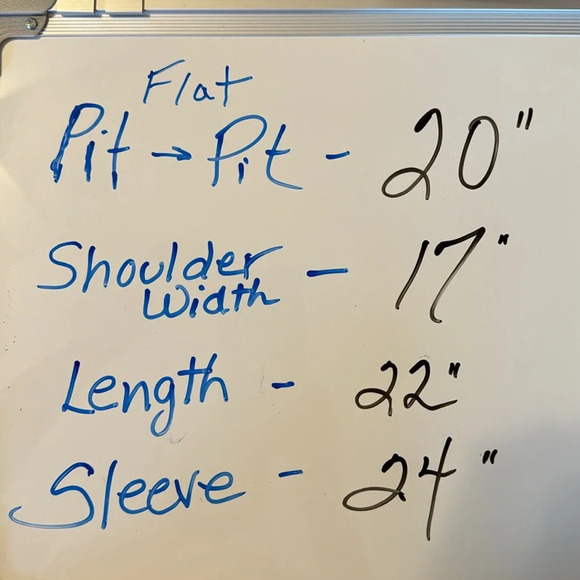 Flat
Pit → Pit - 20"
Shoulder - 17"
Width
Length - 22"
Sleeve - 24"